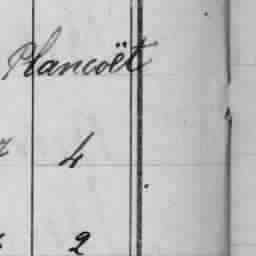 Plancoët
4
2